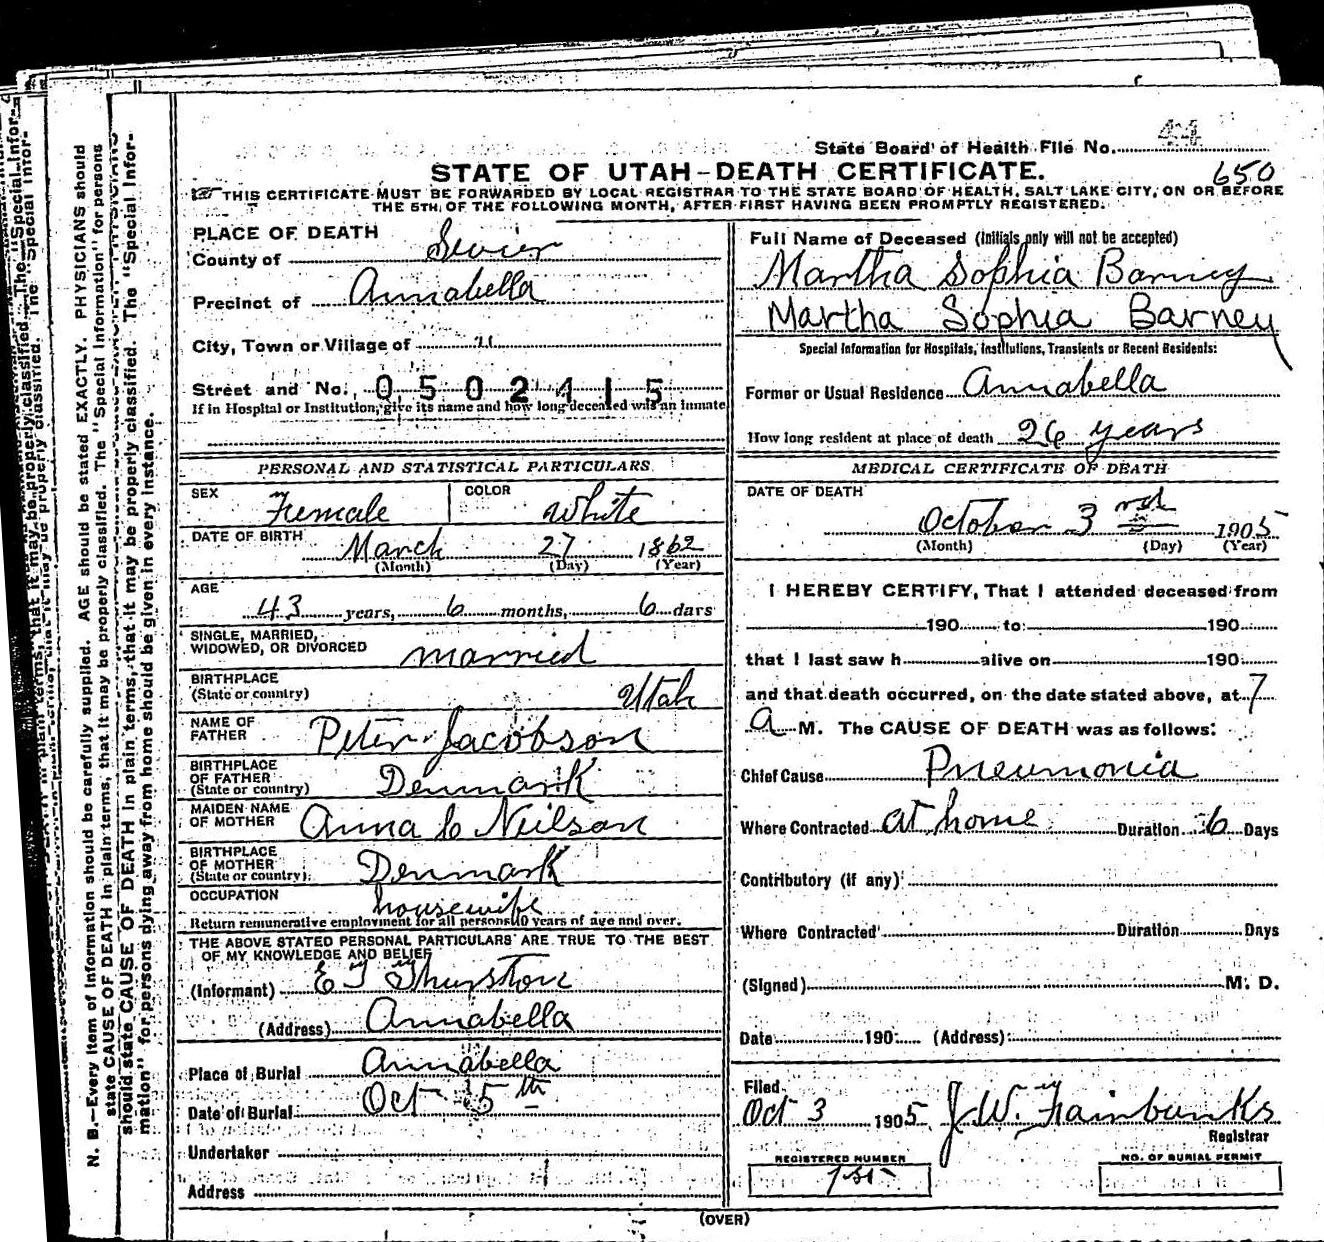 State Board of Health File No. 44
STATE OF UTAH-DEATH CERTIFICATE. 650
THIS CERTIFICATE MUST BE FORWARDED BY LOCAL REGISTRAR TO THE STATE BOARD OF HEALTH, SALT LAKE CITY, ON OR BEFORE
THE 5TH OF THE FOLLOWING MONTH, AFTER FIRST HAVING BEEN PROMPTLY REGISTERED.
PLACE OF DEATH
County of Sevier
Precinct of Annabella
City, Town or Village of "
Street and No. 0502415
If in Hospital or Institution, give its name and how long deceased was an inmate
PERSONAL AND STATISTICAL PARTICULARS
SEX Female COLOR White
DATE OF BIRTH March 27 1862
(Month) (Day) (Year)
AGE 43 years, 6 months, 6 days
SINGLE, MARRIED,
WIDOWED, OR DIVORCED married
BIRTHPLACE
(State or country) Utah
NAME OF
FATHER Peter Jacobson
BIRTHPLACE
OF FATHER
(State or country) Denmark
MAIDEN NAME
OF MOTHER Anna C Neilson
BIRTHPLACE
OF MOTHER
(State or country) Denmark
OCCUPATION housewife
Return remunerative employment for all persons 10 years of age and over.
THE ABOVE STATED PERSONAL PARTICULARS ARE TRUE TO THE BEST
OF MY KNOWLEDGE AND BELIEF
(Informant) E T Thurston
(Address) Annabella
Place of Burial Annabella
Date of Burial Oct 5th
Undertaker
Address
Full Name of Deceased (Initials only will not be accepted)
Martha Sophia Barney
Martha Sophia Barney
Special Information for Hospitals, Institutions, Transients or Recent Residents:
Former or Usual Residence Annabella
How long resident at place of death 26 years
MEDICAL CERTIFICATE OF DEATH
DATE OF DEATH
October 3rd 1905
(Month) (Day) (Year)
I HEREBY CERTIFY, That I attended deceased from
190 to 190
that I last saw h alive on 190
and that death occurred, on the date stated above, at 7
a M. The CAUSE OF DEATH was as follows:
Chief Cause Pneumonia
Where Contracted at home Duration 6 Days
Contributory (if any)
Where Contracted Duration Days
(Signed) M. D.
Date 190 (Address)
Filed
Oct 3 1905 J W. Fairbanks
Registrar
REGISTERED NUMBER NO. OF BURIAL PERMIT
1st
(OVER)
N. B.—Every item of information should be carefully supplied. AGE should be stated EXACTLY. PHYSICIANS should
state CAUSE OF DEATH in plain terms, that it may be properly classified. The "Special Information" for persons
should state CAUSE OF DEATH in plain terms, that it may be properly classified. The "Special Infor-
mation" for persons dying away from home should be given in every instance.